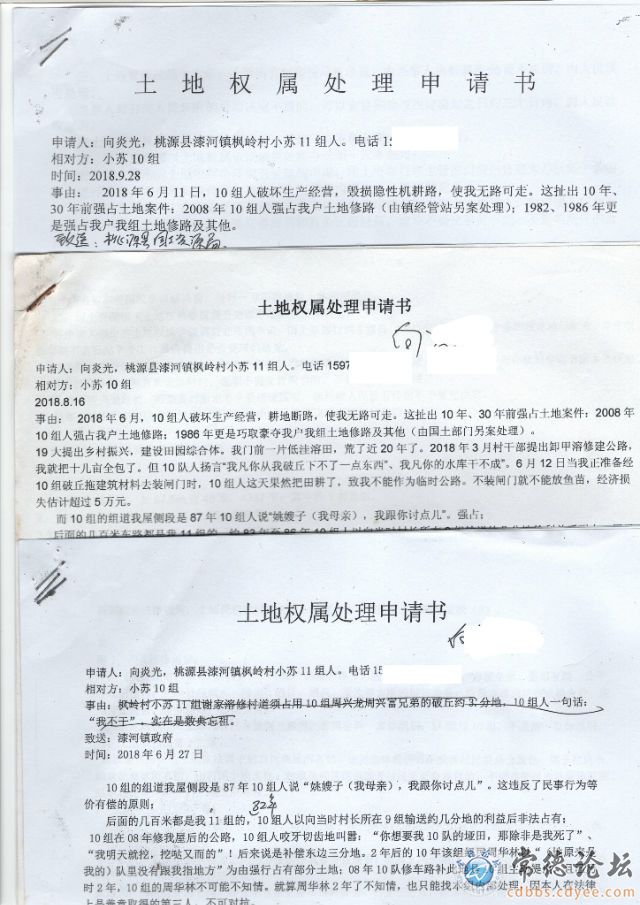 土地权属处理申请书
申请人：向炎光，桃源县漆河镇枫岭村小苏11组人。电话15
相对方：小苏10组
时间：2018.9.28
事由： 2018年6月11日，10组人破坏生产经营，毁损隐性机耕路，使我无路可走。这扯出10年、
30年前强占土地案件：2008年10组人强占我户土地修路（由镇经管站另案处理）；1982、1986年更
是强占我户我组土地修路及其他。
致送：桃源县国土资源局。
土地权属处理申请书
申请人：向炎光，桃源县漆河镇枫岭村小苏11组人。电话1597
相对方：小苏10组
2018.8.16
事由： 2018年6月，10组人破坏生产经营，耕地断路，使我无路可走。这扯出10年、30年前强占土地案件：2008年
10组人强占我户土地修路；1986年更是巧取豪夺我户我组土地修路及其他（由国土部门另案处理）。
19大提出乡村振兴，建设田园综合体。我门前一片低洼溶田，荒了近20年了。2018年3月村干部提出卸甲溶修建公路，
我就把十几亩全包了。但10队人扬言“我凡你从我破丘下不了一点东西”、我凡你的水库干不成”。6月12日当我正准备经
10组破丘拖建筑材料去装闸门时，10组人这天果然把田耕了，致我不能作为临时公路。不装闸门就不能放鱼苗，经济损
失估计超过5万元。
而10组的组道我屋侧段是87年10组人说“姚嫂子（我母亲），我跟你讨点儿”。强占；
土地权属处理申请书
申请人：向炎光，桃源县漆河镇枫岭村小苏11组人。电话15
相对方：小苏10组
事由：枫岭村小苏11组谢家溶修村道须占用10组周兴龙周兴富兄弟的破丘约3分地，10组人一句话：
“我不干”，实在是数典忘祖。
致送：漆河镇政府
时间：2018年6月27日
10组的组道我屋侧段是87年10组人说“姚嫂子（我母亲），我跟你讨点儿”。这违反了民事行为等
价有偿的原则；
后面的几百米都是我11组的，10组人以向当时村长所在9组输送的几分地的利益后非法占有；
10组在08年修我屋后的公路，10组人咬牙切齿地叫嚣：“你想要我10队的垭田，那除非是我死了”、
“我明天就挖，挖哒又而的”！后来说是补偿东边三分地。2年后的10年该组组民周华林
我的）队里没有跟我指地方”为由强行占有部分土地；08年10队修车路补
时2年，10组的周华林不可能不知情。就算周华林2年了不知情，也只能找本组内部处理，因本人在法律
上是善意取得的第三人，不可对抗。
常德论坛
cdbbs.cdyee.com